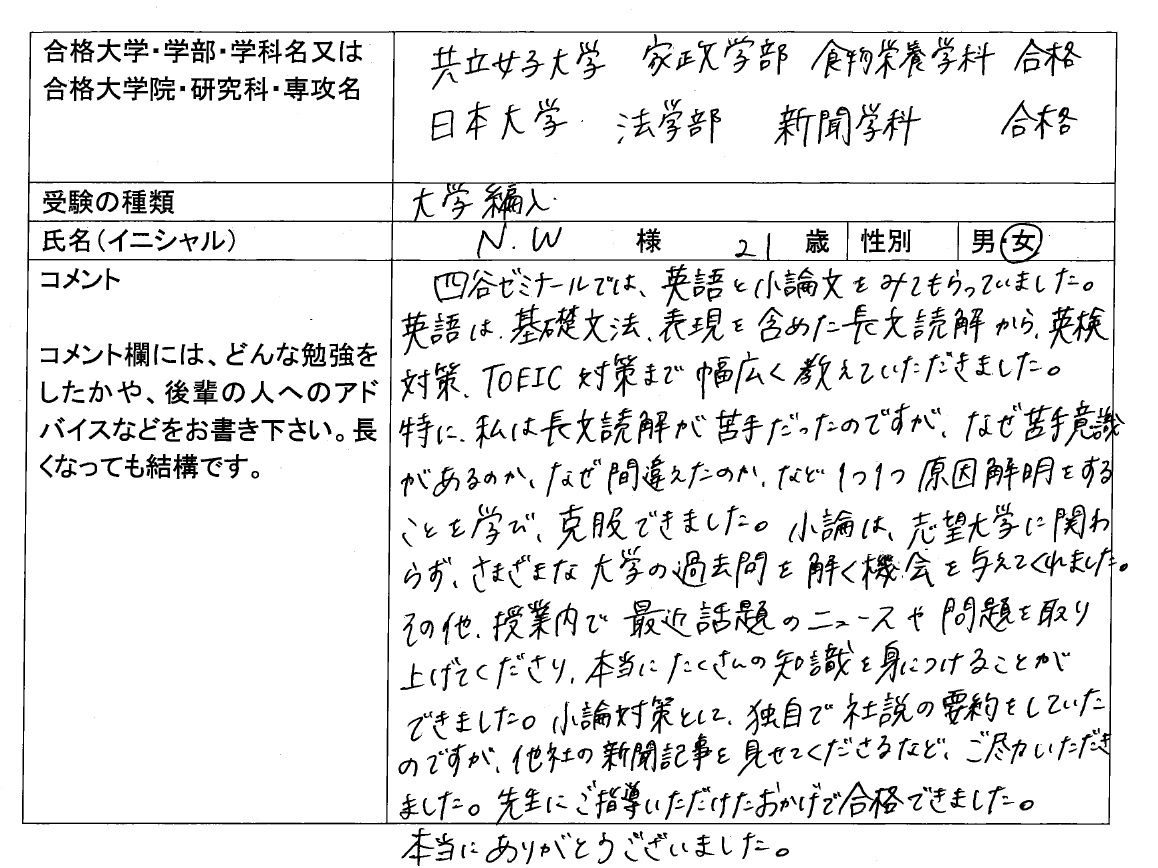 合格大学・学部・学科名又は
合格大学院・研究科・専攻名
共立女子大学 家政学部 食物栄養学科 合格
日本大学 法学部 新聞学科 合格
受験の種類
大学編入
氏名(イニシャル)
N.W 様 21 歳 性別 男・女
コメント
コメント欄には、どんな勉強を
したかや、後輩の人へのアド
バイスなどをお書き下さい。長
くなっても結構です。
四谷ゼミナールでは、英語と小論文をみてもらっていました。
英語は、基礎文法、表現を含めた長文読解から、英検
対策、TOEIC対策まで幅広く教えていただきました。
特に、私は長文読解が苦手だったのですが、なぜ苦手意識
があるのか、なぜ間違えたのか、など1つ1つ原因解明をする
ことを学び、克服できました。小論は、志望大学に関わ
らず、さまざまな大学の過去問を解く機会を与えてくれました。
その他、授業内で最近話題のニュースや問題を取り
上げてくださり、本当にたくさんの知識を身につけることが
できました。小論対策として、独自で社説の要約をしていた
のですが、他社の新聞記事を見せてくださるなど、ご尽力いただき
ました。先生にご指導いただけたおかげで合格できました。
本当にありがとうございました。